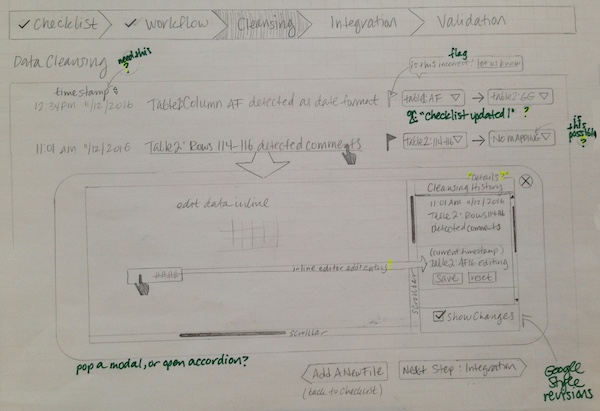 ✓ Checklist
✓ Workflow
Cleansing
Integration
Validation
Data Cleansing
need this
?
timestamps
flag
is this incorrect? let us know
12:34PM 9/12/2016 Table1:Column AF detected as date format
table1:AF ▽ → table2:GG ▽
"checklist updated!" ?
is this possible?
11:01 AM 9/12/2016 Table2: Rows 114-116 detected comments
Table2:114-116 ▽ → No MAPPING ▽
"Details?"
Cleansing History
11:01 AM 9/12/2016
Table2: Rows 114-116
detected comments
edit data inline
####
inline editor adds entry
(current timestamp)
Table2: AF16 editing
Save reset
scrollbar
scrollbar
☑ Show Changes
pop a modal, or open accordion?
Google
Style
revisions
Add A New File
(back to Checklist)
Next Step: Integration